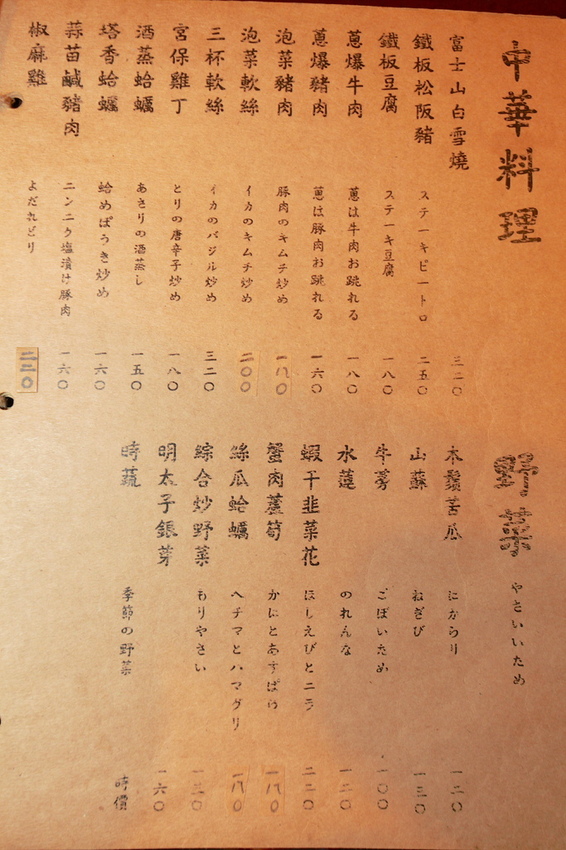 中華料理
富士山白雪燒 三二〇
鐵板松阪豬 ステーキピートロ 二五〇
鐵板豆腐 ステーキ豆腐 一八〇
蔥爆牛肉 蔥は牛肉お跳れる 一八〇
蔥爆豬肉 蔥は豚肉お跳れる 一六〇
泡菜豬肉 豚肉のキムチ炒め 一八〇
泡菜軟絲 イカのキムチ炒め 二〇〇
三杯軟絲 イカのバジル炒め 三二〇
宮保雞丁 とりの唐辛子炒め 一八〇
酒蒸蛤蠣 あさりの酒蒸し 一五〇
塔香蛤蠣 蛤めぼうき炒め 一六〇
蒜苗鹹豬肉 ニンニク塩漬け豚肉 一六〇
椒麻雞 よだれどり 二二〇
野菜 やさいいため
本鬚苦瓜 にがうり 一二〇
山蘇 ねぎび 一三〇
牛蒡 ごぼいため 一〇〇
水蓮 のれんな 一二〇
蝦干韭菜花 ほしえびとニラ 二二〇
蟹肉蘆筍 かにとあすぱら 一八〇
絲瓜蛤蠣 ヘチマとハマグリ 一八〇
綜合炒野菜 もりやさい 一二〇
明太子銀芽 一六〇
時蔬 季節の野菜 時價